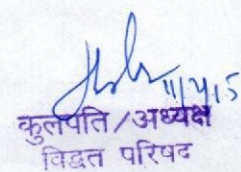 11/4/15
कुलपति/अध्यक्ष
विद्वत परिषद